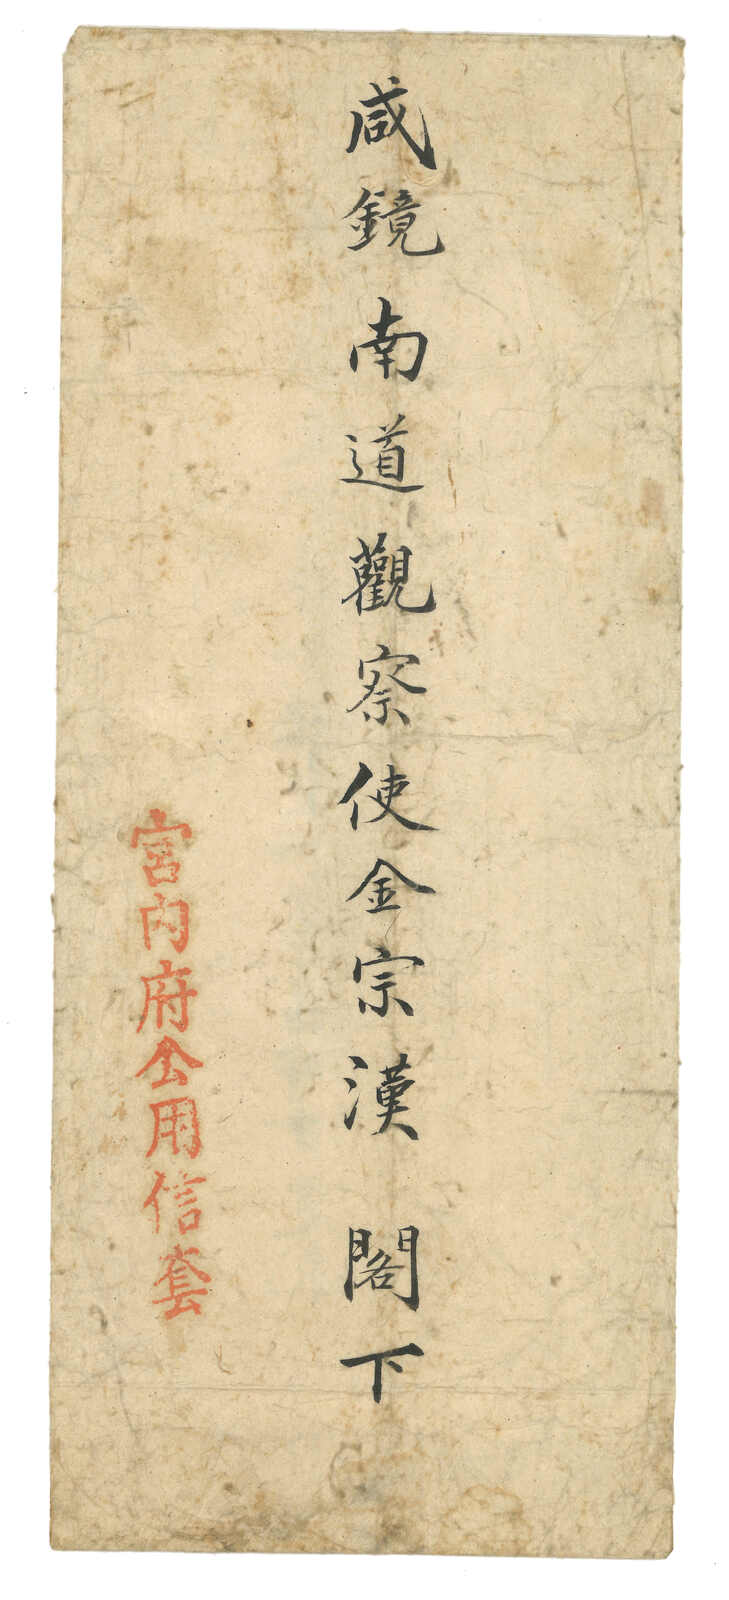 咸鏡南道觀察使金宗漢 閣下
宮內府公用信套